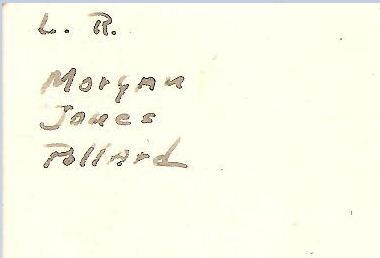 L. R.
Morgan
Jones
Pollard